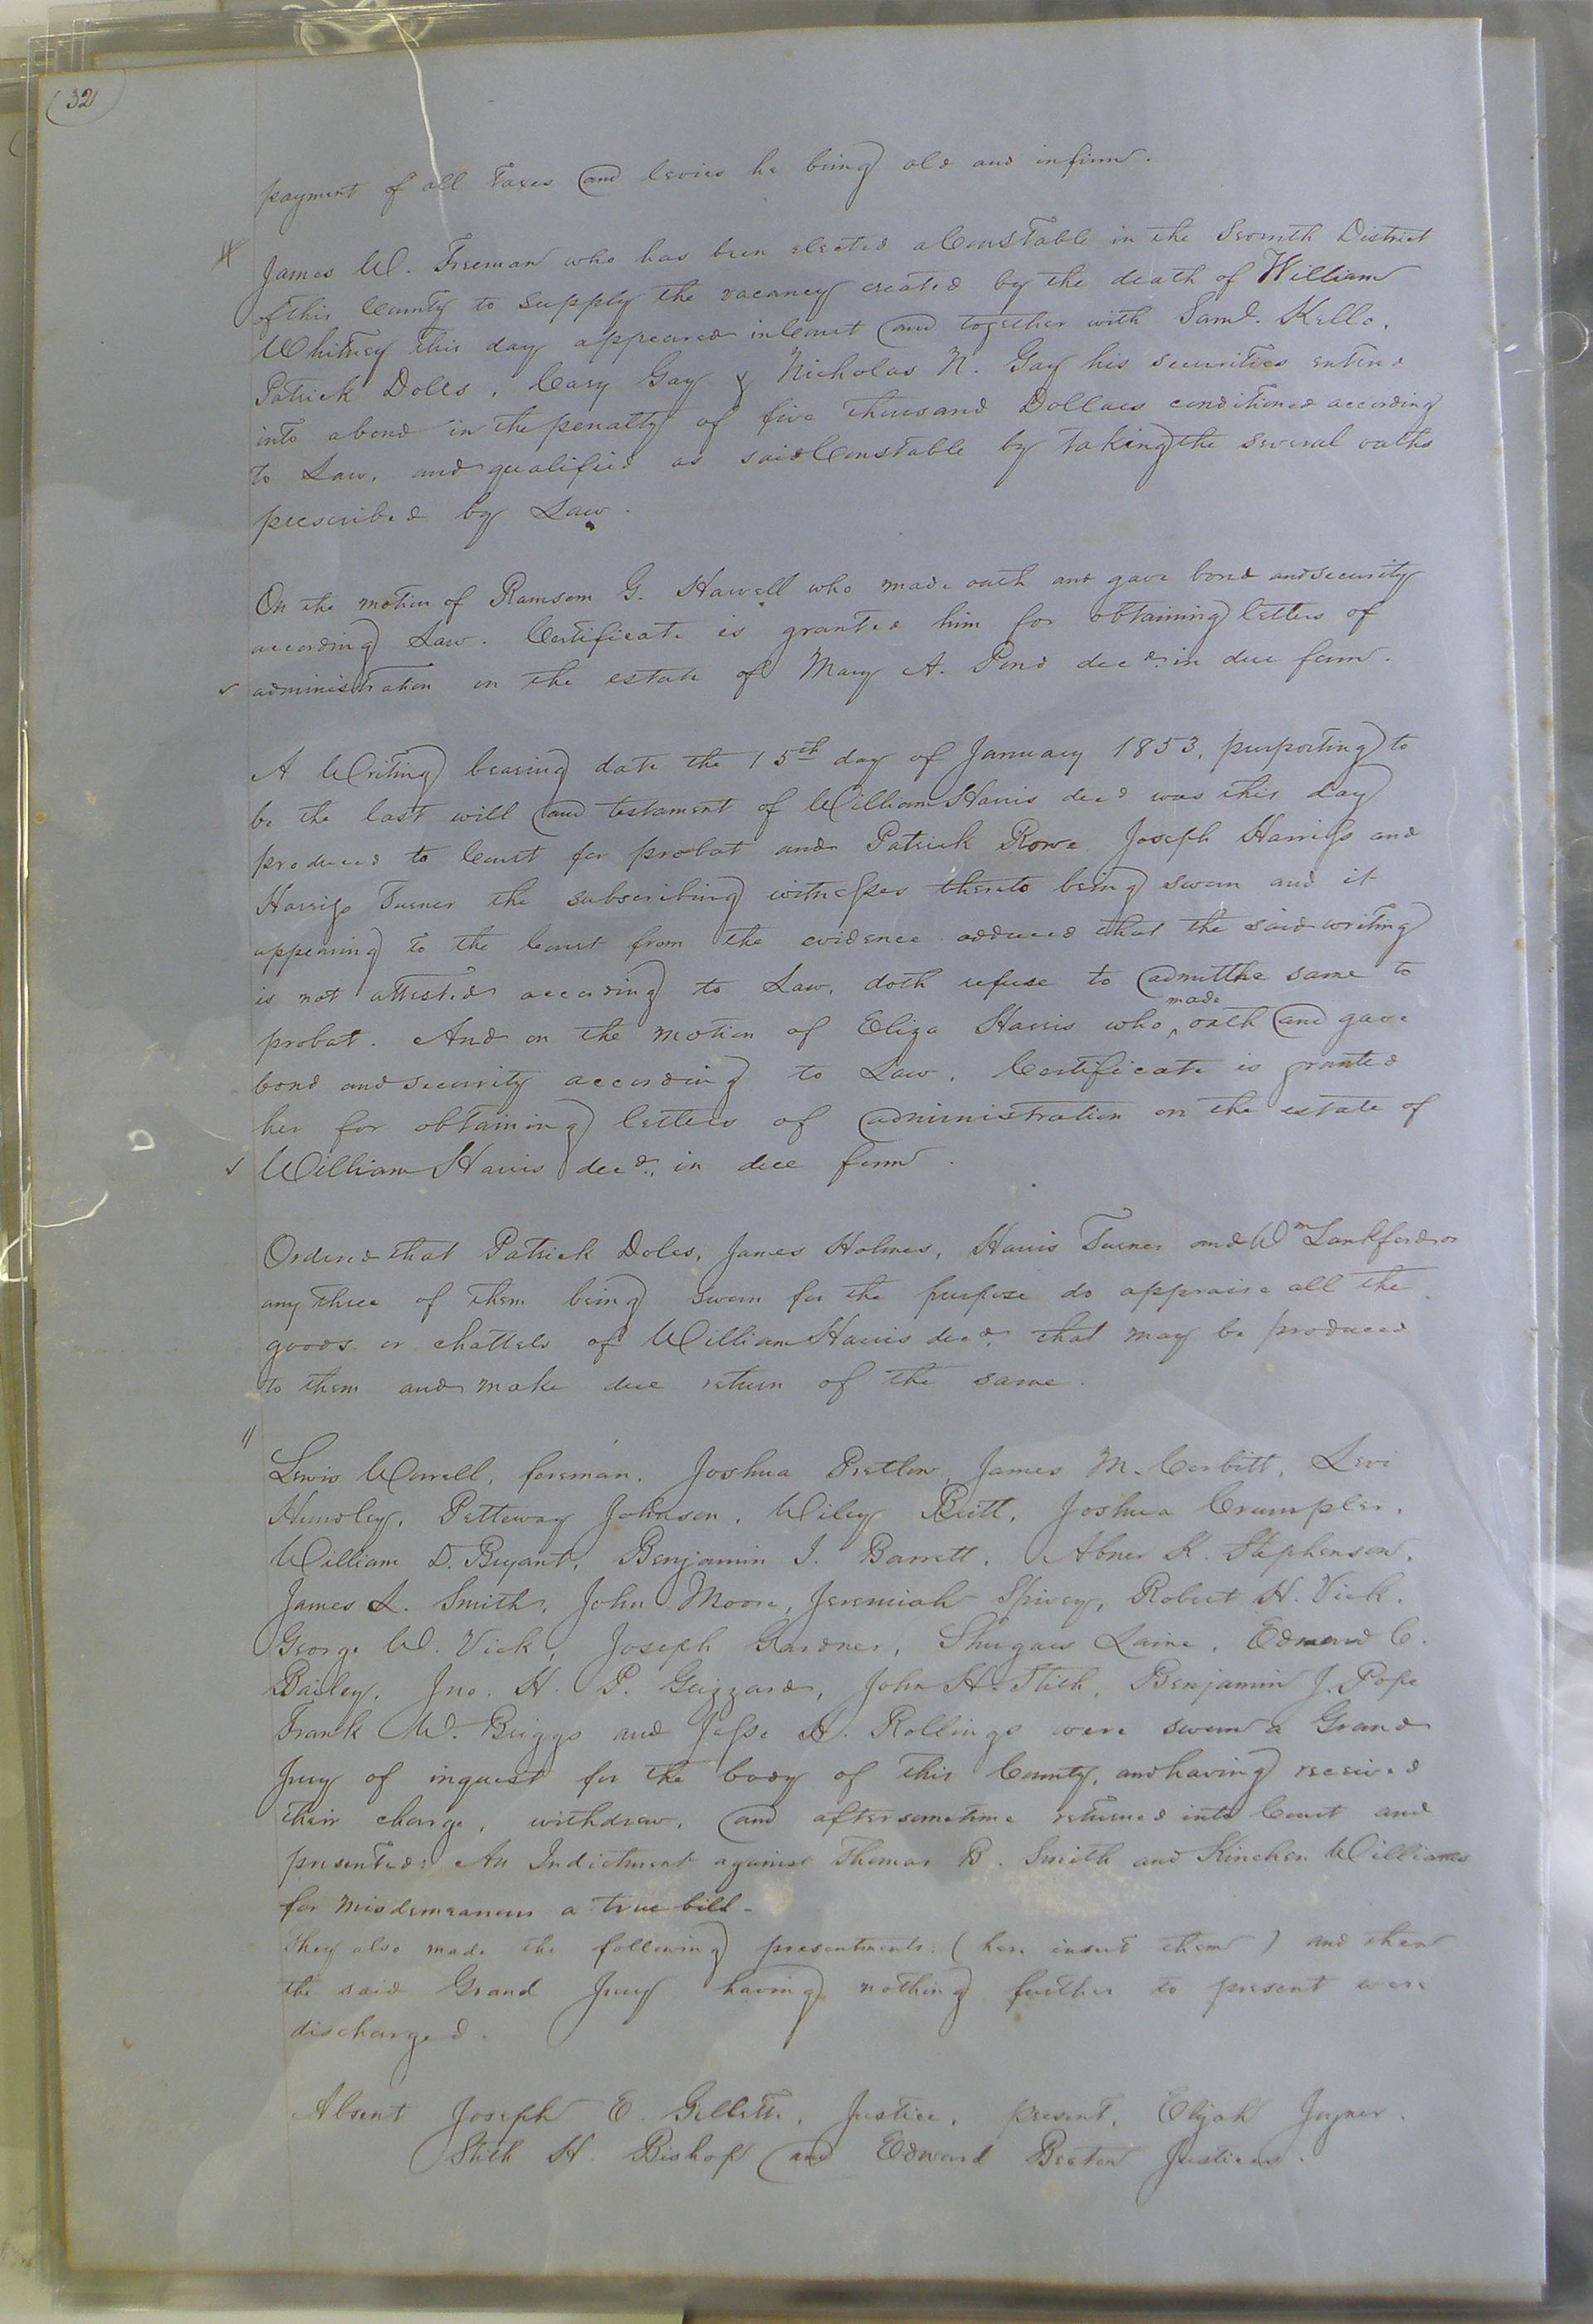 32
payment of all Taxes and levies he being old and infirm.
James W. Freeman who has been elected a Constable in the Seventh District
of this County to supply the vacancy created by the death of William
Whitney this day appeared in Court and together with Saml. Kello,
Patrick Doles, Cary Gay & Nicholas N. Gay his securities entered
into a bond in the penalty of five thousand Dollars conditioned according
to Law, and qualified as said Constable by taking the several oaths
prescribed by Law.
On the motion of Ramsom G. Howell who made oath and gave bond and security
according Law. Certificate is granted him for obtaining letters of
administration on the estate of Mary A. Pond decd. in due form.
A Writing bearing date the 15th day of January 1853, purporting to
be the last will and testament of William Harris decd was this day
produced to Court for probat and Patrick Rowe Joseph Harriss and
Harriss Turner the subscribing witnesses thereto being sworn and it
appearing to the Court from the evidence adduced that the said writing
is not attested according to Law, doth refuse to admit the same to
probat. And on the motion of Eliza Harris who made oath and gave
bond and security according to Law, Certificate is granted
her for obtaining letters of administration on the estate of
William Harris decd., in due form.
Ordered that Patrick Doles, James Holmes, Harris Turner and Wm Lankford or
any three of them being sworn for the purpose do appraise all the
goods or chattels of William Harris decd. that may be produced
to them and make due return of the same.
Lewis Worrell, foreman, Joshua Pretlow, James M. Corbitt, Levi
Hundley, Petteway Johnson, Wiley Britt, Joshua Crumpler,
William D. Bryant, Benjamin J. Barrett, Abner K. Stephenson,
James L. Smith, John Moore, Jeremiah Spivey, Robert H. Vick,
George W. Vick, Joseph Gardner, Shugars Laine, Edmund C.
Bailey, Jno. H. P. Grizzard, John H. Stith, Benjamin J. Pope
Frank W. Briggs and Jesse H. Rollings were sworn a Grand
Jury of inquest for the body of this County, and having received
their charge, withdrew, and after sometime returned into Court and
presented: An Indictment against Thomas B. Smith and Kinchen Williams
for misdemeanour a true bill -
They also made the following presentments: (here insert them) and then
the said Grand Jury having nothing further to present were
discharged.
Absent Joseph E. Gillette, Justice, present, Elijah Joyner,
Stith H. Bishop and Edward Beaton Justices.